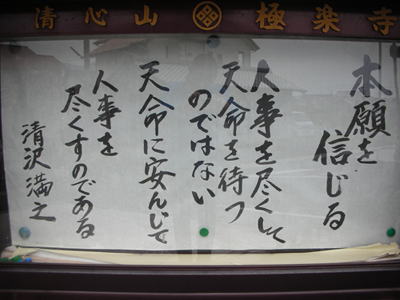 清心山 極楽寺
本願を
信じる
人事を尽くして
天命を待つ
のではない
天命に安んじて
人事を
尽くすのである
清沢満之